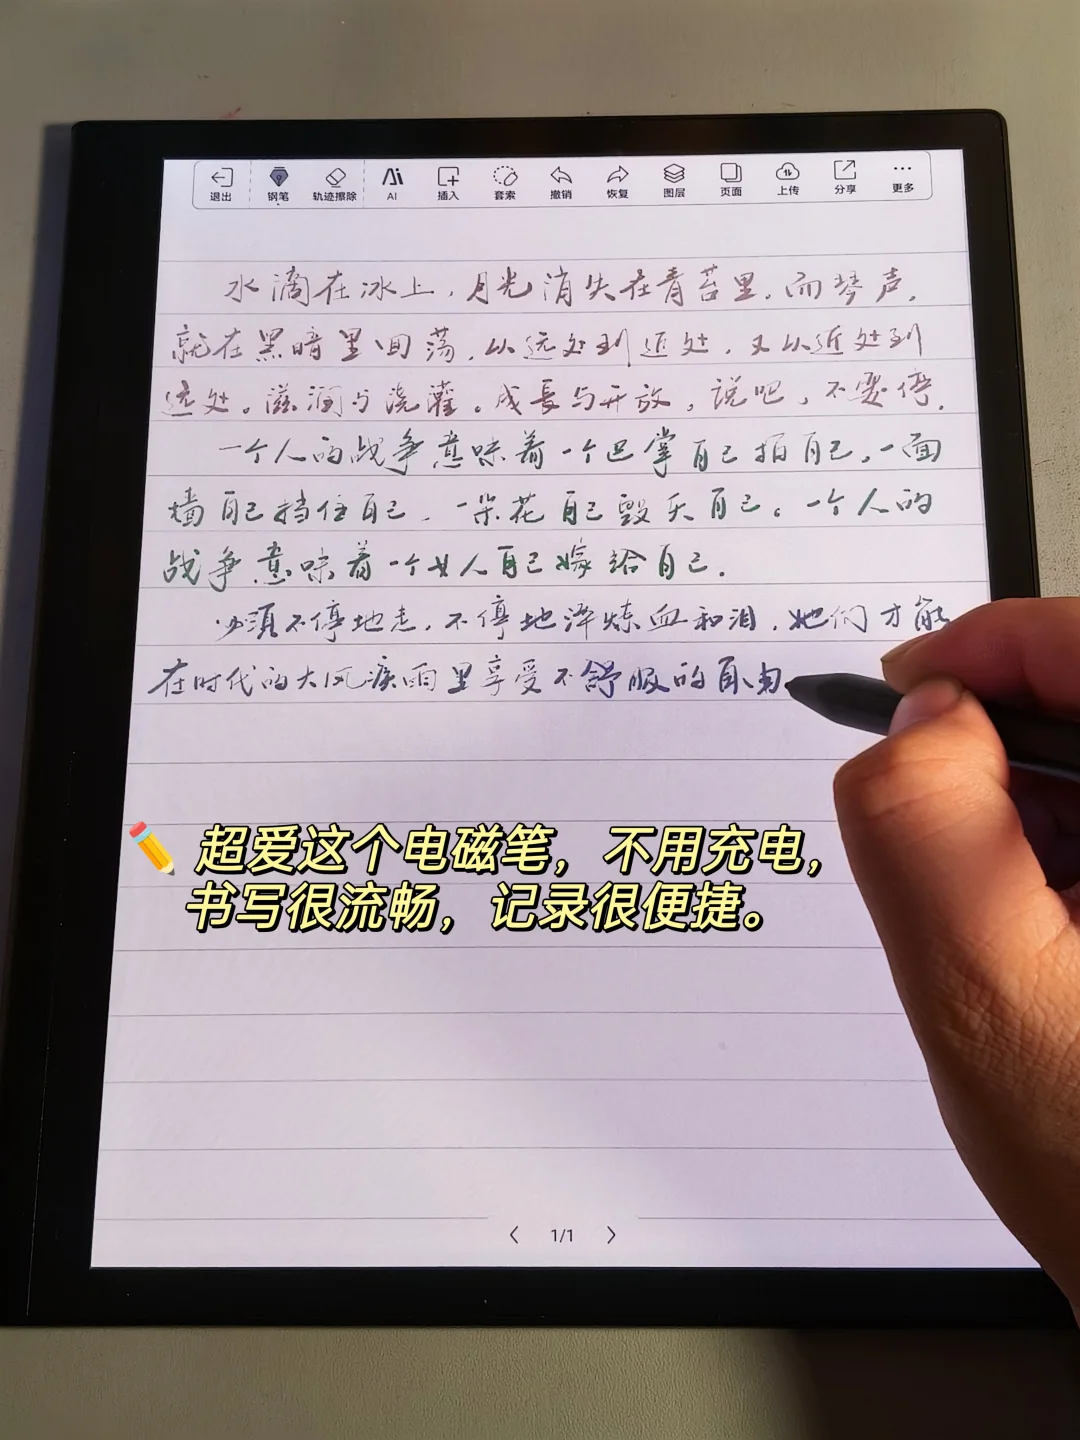 退出 钢笔 轨迹擦除 AI 插入 套索 撤销 恢复 图层 页面 上传 分享 更多
水滴在冰上，月光消失在青苔里，而琴声，
就在黑暗里回荡，从远处到近处，又从近处到
远处。滋润与浇灌。成长与开放，说吧，不要停。
一个人的战争意味着一个巴掌自己拍自己，一面
墙自己挡住自己，一朵花自己毁灭自己。一个人的
战争意味着一个女人自己嫁给自己。
必须不停地走，不停地淬炼血和泪，她们才能
在时代的大风疾雨里享受不舒服的自由
✏️ 超爱这个电磁笔，不用充电，
书写很流畅，记录很便捷。
1/1